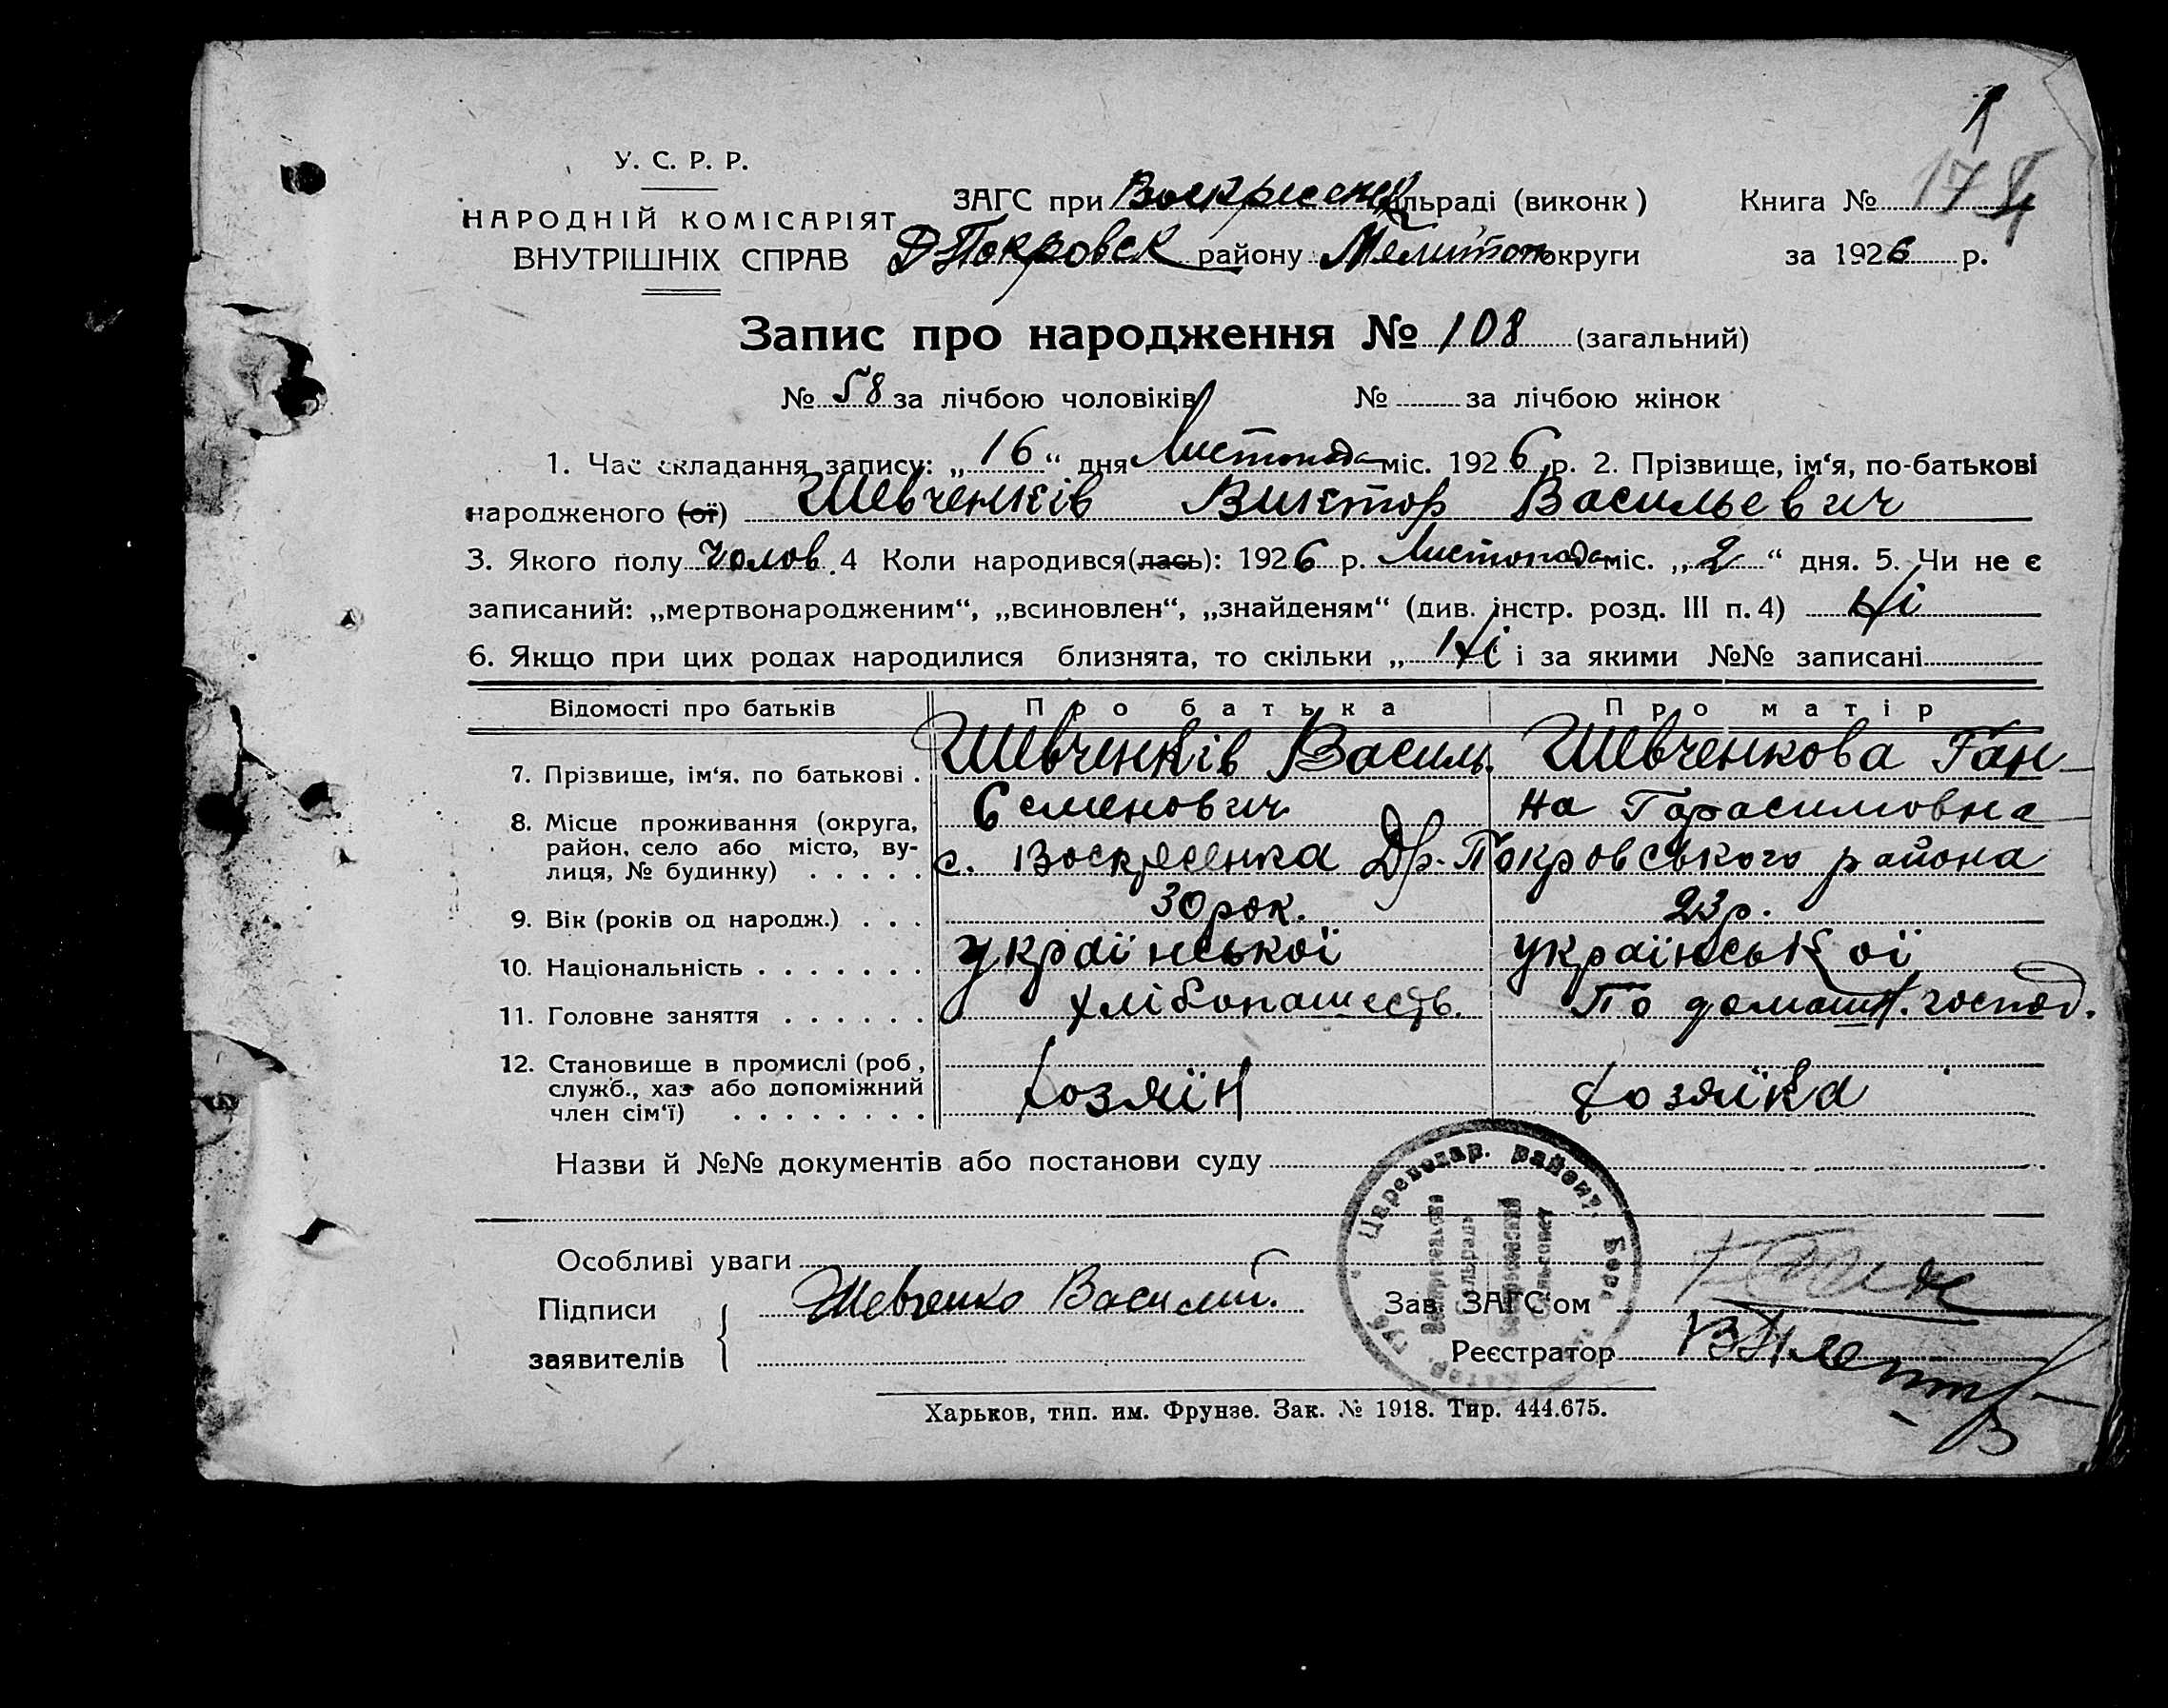 У. С. Р. Р.
НАРОДНІЙ КОМІСАРІЯТ
ВНУТРІШНІХ СПРАВ
ЗАГС при Воскресенск. сільраді (виконк ) Книга №
Д Покровск району Мелитоп округи за 1926 р.
Запис про народження № 108 (загальний)
№ 58 за лічбою чоловіків № за лічбою жінок
1. Час складання запису: „ 16 “ дня Листопада міс. 1926 р. 2. Прізвище, ім‘я, по-батькові
народженого (ої) Шевченків Виктор Васильевич
3. Якого полу Чолов. 4 Коли народився(лась): 1926 р. Листопада міс. „ 2 “ дня. 5. Чи не є
записаний: „мертвонародженим“, „всиновлен“, „знайденям“ (див. інстр. розд. III п. 4) Ні
6. Якщо при цих родах народилися близнята, то скільки „ Ні і за якими №№ записані
Відомості про батьків Про батька Про матір
7. Прізвище, ім‘я. по батькові . Шевченків Василь. Шевченкова Ган-
Семенович на Гарасимовна
8. Місце проживання (округа,
район, село або місто, ву-
лиця, № будинку) . . . . . с. Воскресенка Др-Покровського района
9. Вік (років од народж.) . . . 30 рок. 23 р.
10. Національність . . . . . . . української української
11. Головне заняття . . . . . . хлібопашеств. По домашн. господ.
12. Становище в промислі (роб ,
служб., хаз або допоміжний
член сім‘ї) . . . . . . . . хозяїн хозяїка
Назви й №№ документів або постанови суду
Цареводар. району, Берд.
Особливі уваги
Підписи Шевченко Василий. Зав. ЗАГС‘ом
заявителів Реєстратор
Харьков, тип. им. Фрунзе. Зак. № 1918. Тир. 444.675.